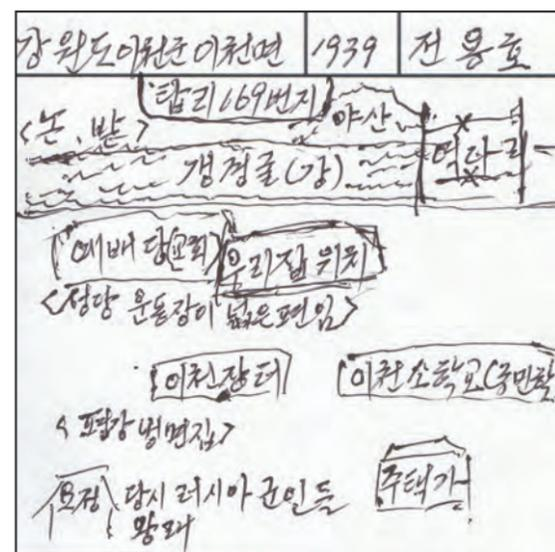 강원도이천군이천면 1939 전용호
탑리169번지
<논, 밭> 야산
갱경글(강)
예배당(교회) 우리집 위치
운동장이 넓은편임>
이천장터 이천소학교(국민학
<평강냉면집>
당시 러시아 군인들 주택가
왕래